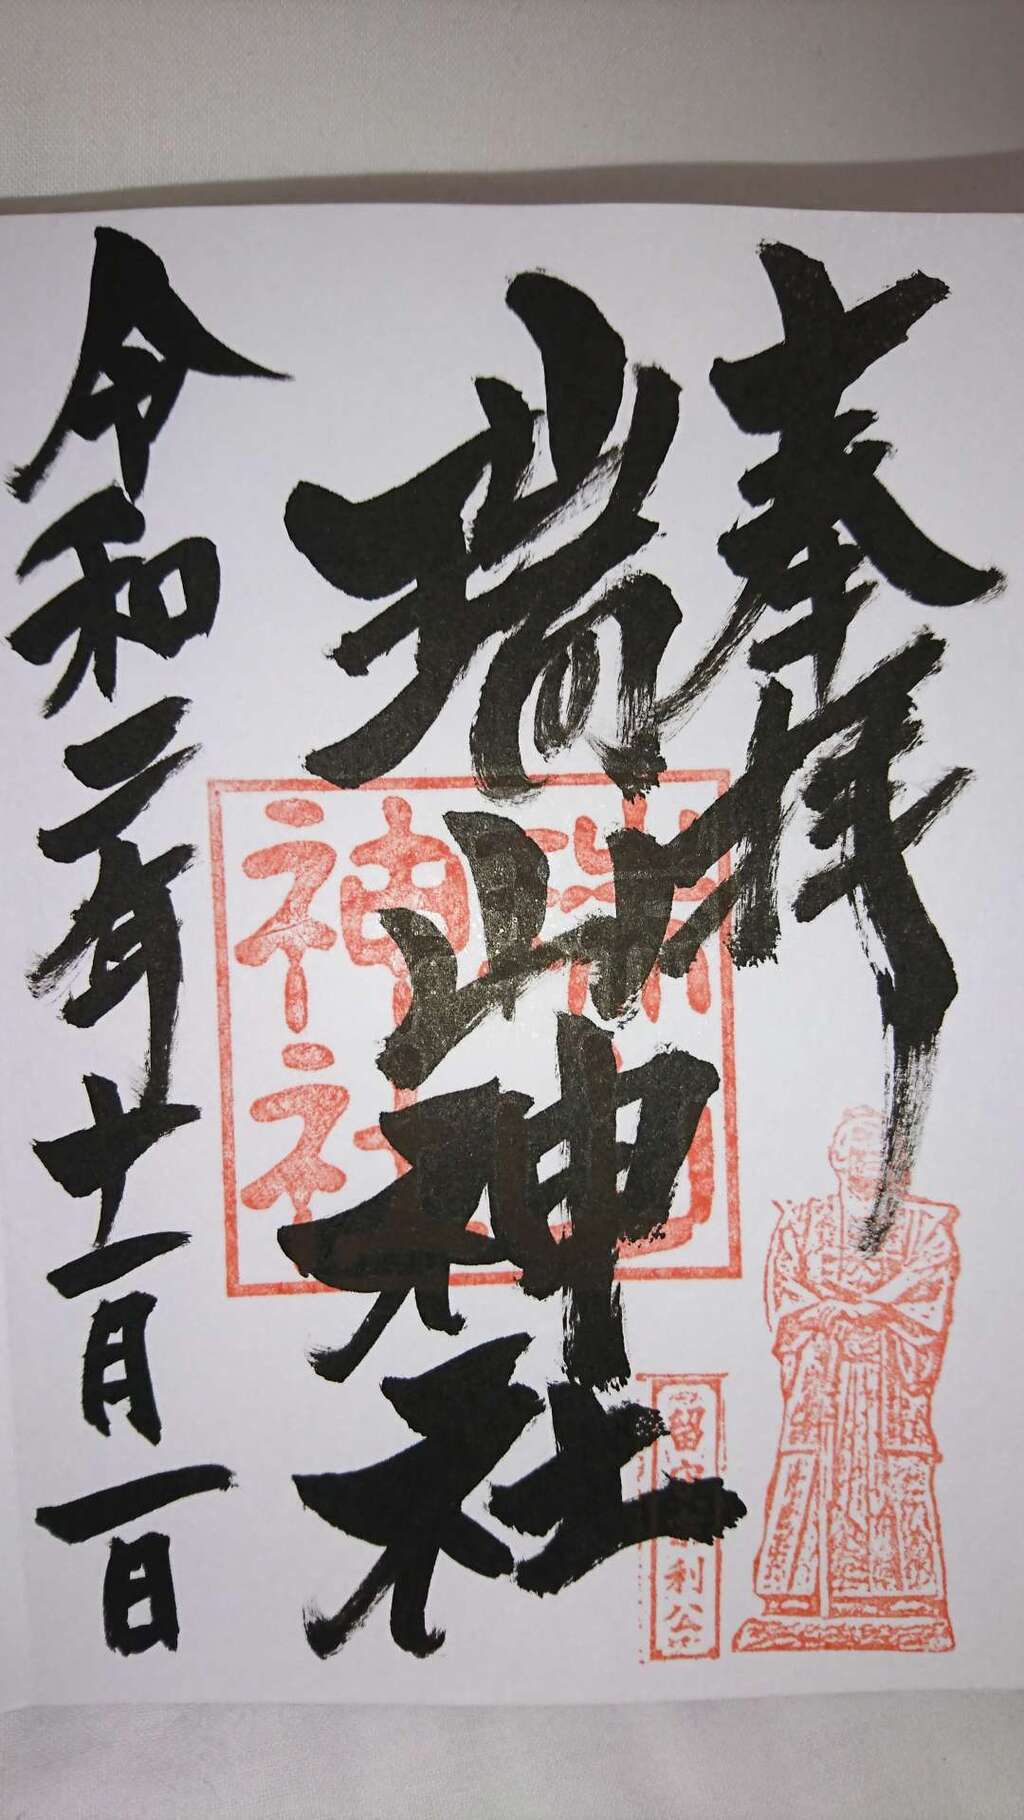 奉拝
瑞山神社
瑞山
神社
留守宗利公
令和二年十一月一日